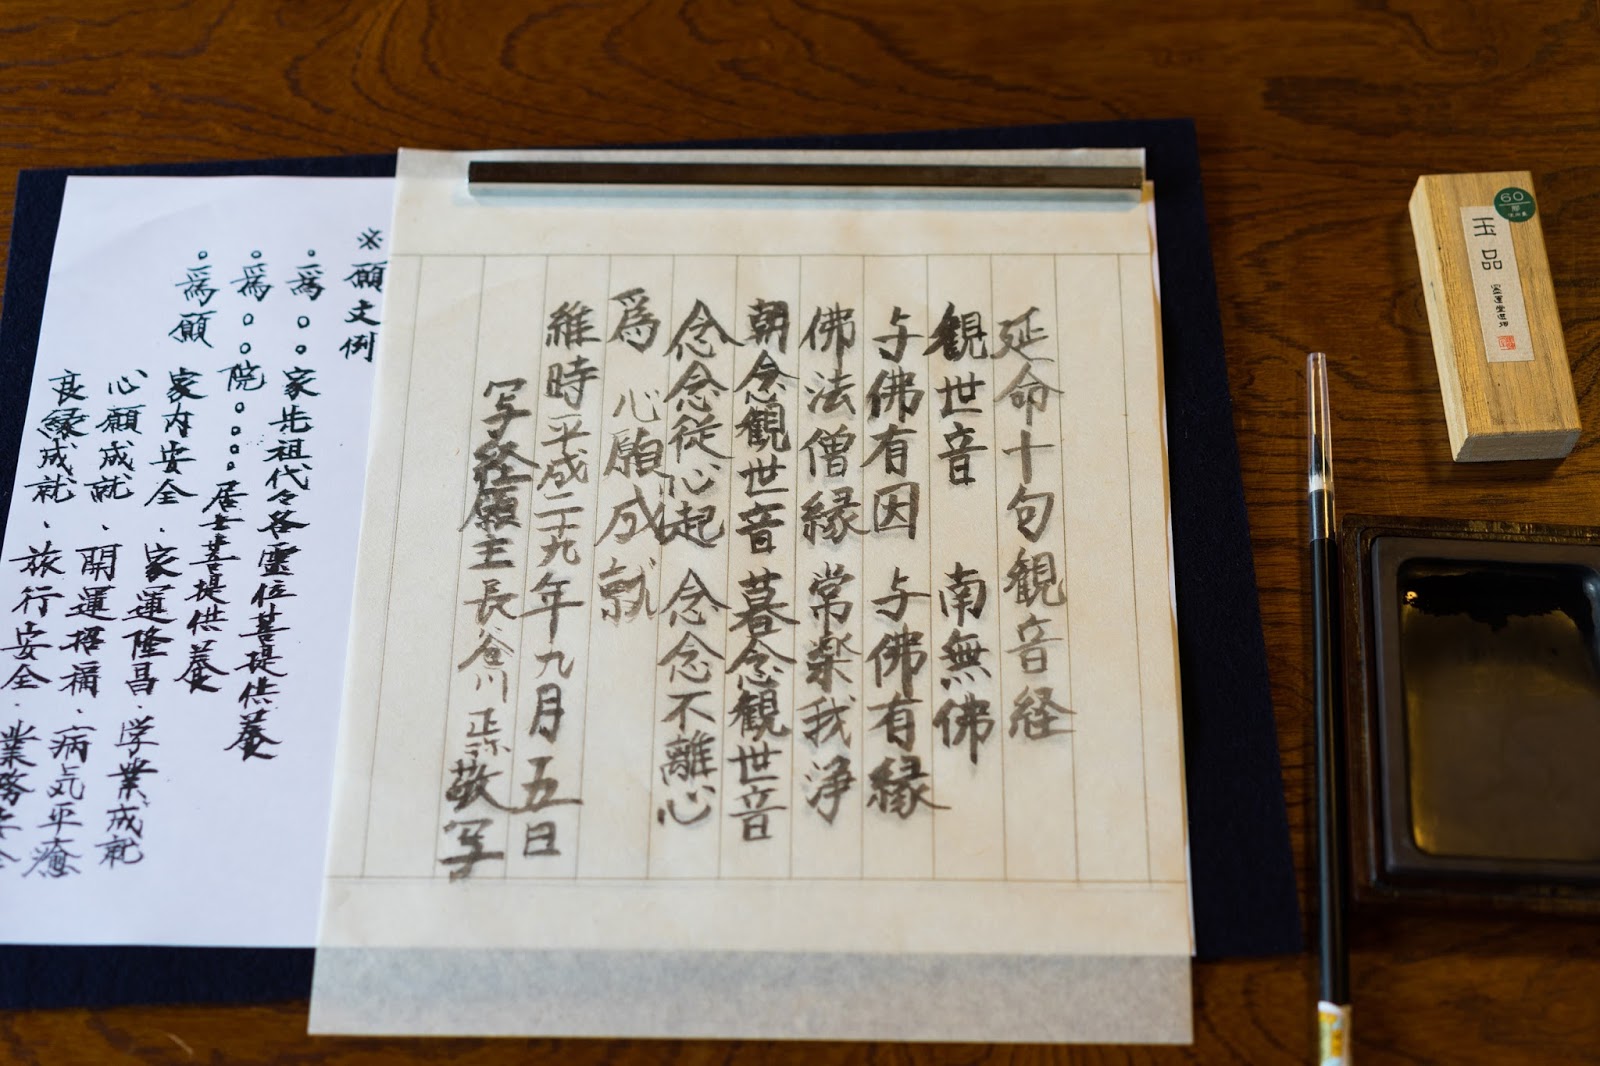 玉品
60
延命十句観音経
観世音 南無佛
与佛有因 与佛有縁
佛法僧縁 常楽我浄
朝念観世音 暮念観世音
念念従心起 念念不離心
爲 心願成就
維時平成二十九年九月五日
写経願主 長谷川 敬写
※願文例
・爲○○家先祖代々各靈位菩提供養
・爲○○院○○○○居士菩提供養
・爲願 家内安全・家運隆昌・学業成就
心願成就・開運招福・病気平癒
良縁成就・旅行安全・業務安全